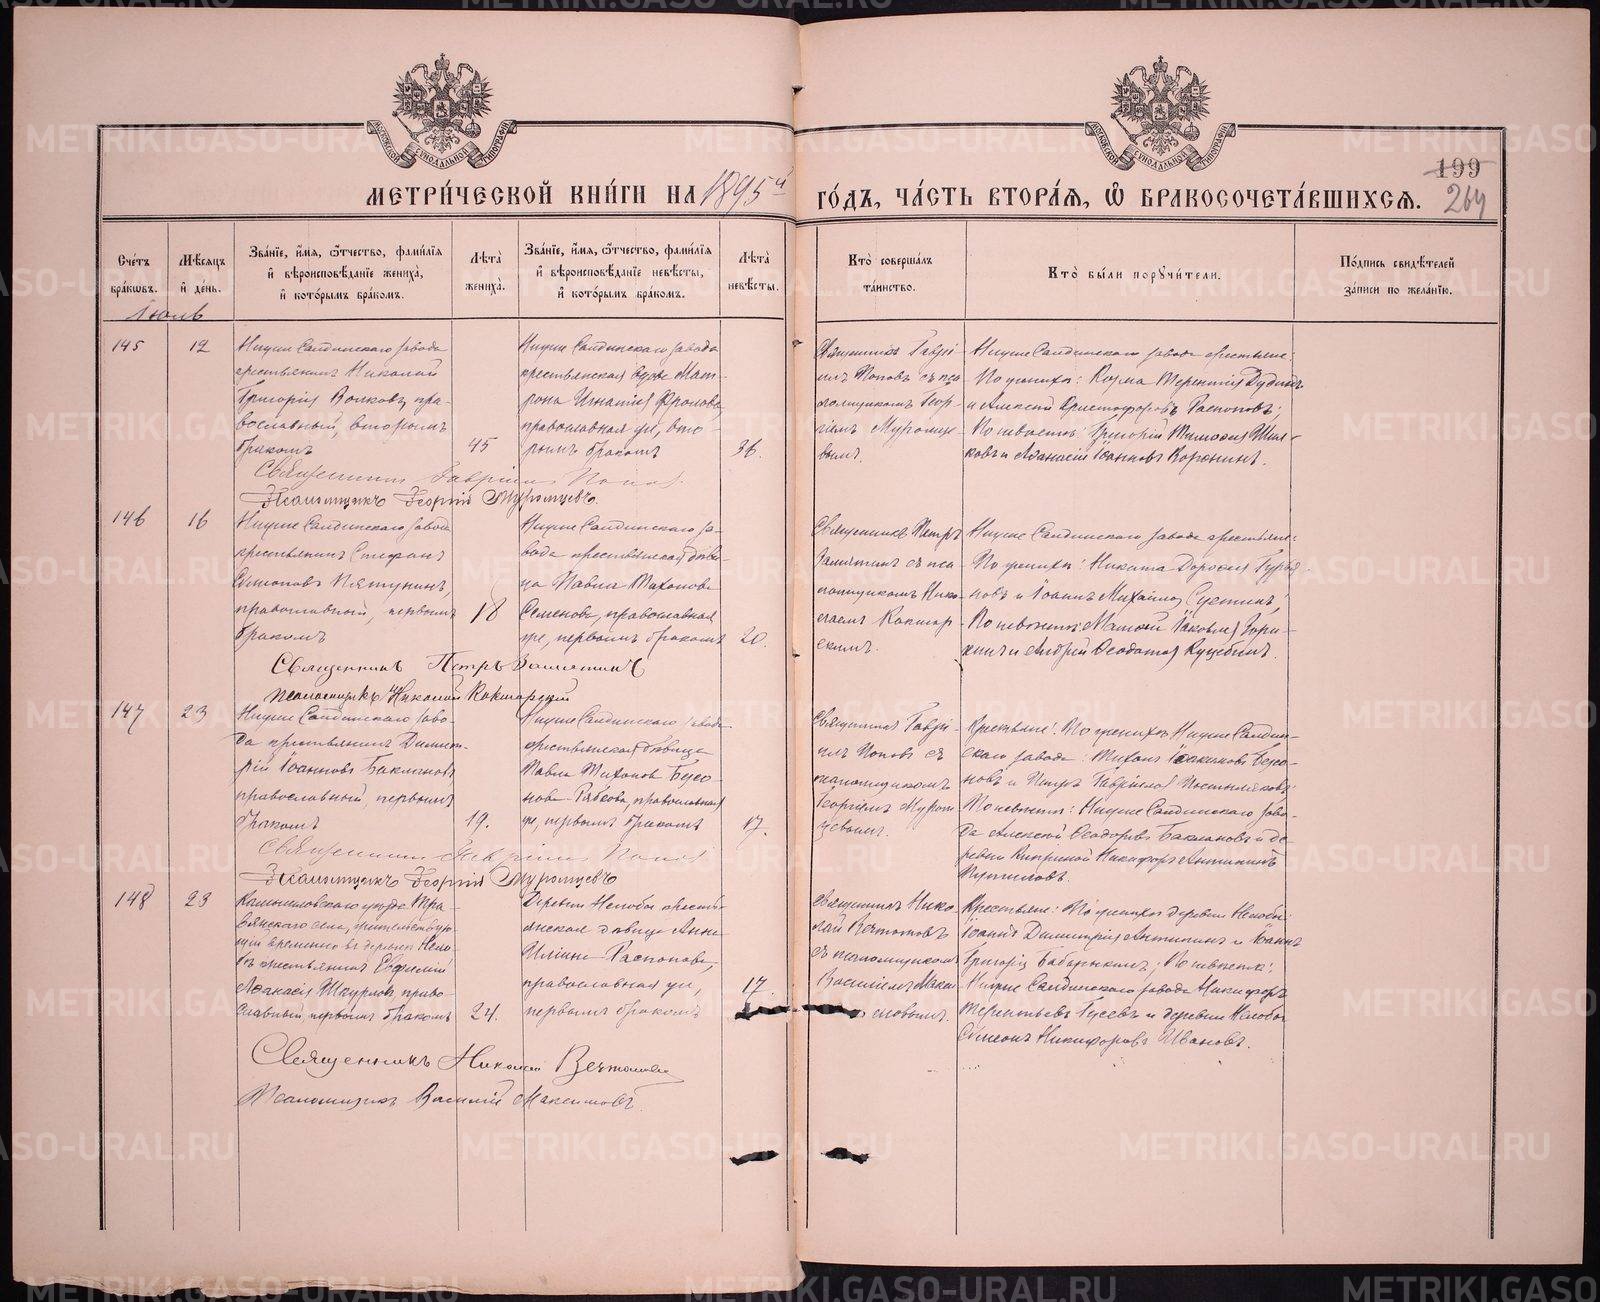 МЕТРИ́ЧЕСКОЙ КНИ́ГИ НА 1895й
ГО́ДЪ, ЧА́СТЬ ВТОРА́Я, Ѽ БРАКОСОЧЕТА́ВШИХСЯ.
199
264
Сче́тъ бра́кѡвъ.
Мѣ́сяцъ и҆ де́нь.
Зва́нїе, и҆́мя, ѻ҆́тчество, фами́лїя и҆ вѣроисповѣ́данїе жениха̀, и҆ кото́рымъ бра́комъ.
Лѣ́та жениха̀.
Зва́нїе, и҆́мя, ѻ҆́тчество, фами́лїя и҆ вѣроисповѣ́данїе невѣ́сты, и҆ кото́рымъ бра́комъ.
Лѣ́та невѣ́сты.
Кто̀ соверша́лъ та́инство.
Кто̀ бы́ли порꙋчи́тели.
По́дпись свидѣ́телей за́писи по жела́нїю.
Іюль
145
12
Нижне Салдинскаго завода
крестьянинъ Николай
Григорія Волковъ, пра-
вославный, вторымъ
бракомъ
45
Нижне Салдинскаго завода
крестьянская вдова Мат-
рона Игнатія Фролова
православная же, вто-
рымъ бракомъ
36.
Священникъ Гаврі-
илъ Поповъ съ пса-
ломщикомъ Геор-
гіемъ Муромце-
вымъ.
Нижне Салдинскаго завода крестьяне:
По женихѣ: Козма Терентія Дудинъ
и Алексѣй Христофоровъ Распоповъ;
По невѣстѣ: Григорій
и Аѳанасій Іоанновъ Воронинъ.
Священникъ Гавріилъ Поповъ
Псаломщикъ Георгій Муромцевъ.
146
16
Нижне Салдинскаго завода
крестьянинъ Стефанъ
Симоновъ Пятунинъ,
православный, первымъ
бракомъ
18
Нижне Салдинскаго за-
вода крестьянская дѣви-
ца Павла Тихонова
Семенова, православная
же, первымъ бракомъ
20.
Священникъ Петръ
Замятинъ съ пса-
ломщикомъ Нико-
лаемъ Кокшар-
скимъ.
Нижне Салдинскаго завода крестьяне:
По женихѣ: Никита Дорофея Гурья-
новъ и Іоаннъ Михайловъ Сустинъ;
По невѣстѣ: Матѳей Іаковлев Зори-
хинъ и Андрей Ѳеодотов
Священникъ Петръ Замятинъ
Псаломщикъ Николай Кокшарскій
147
23
Нижне Салдинскаго заво-
да крестьянинъ Димит-
рій Іоанновъ Баклановъ
православный, первымъ
бракомъ
19.
Нижне Салдинскаго завода
крестьянская дѣвица
Павла Тихонова
Рябкова, православная
же, первымъ бракомъ
17.
Священникъ Гаврі-
илъ Поповъ съ
псаломщикомъ
Георгіемъ Муром-
цевымъ.
Крестьяне: По женихѣ Нижне Салдин-
скаго завода: Тихонъ
и Петръ Гавріилов Постыляковъ;
По невѣстѣ: Нижне Салдинскаго заво-
да Алексѣй Ѳеодоровъ Баклановъ и де-
ревни Никифоръ Антипинъ
Священникъ Гавріилъ Поповъ
Псаломщикъ Георгій Муромцевъ
148
23
Камышловскаго уѣзда Тра-
вянскаго села, жительствую-
щій временно въ деревнѣ Нело-
бѣ крестьянинъ Евфимій
Аѳанасія Шкурловъ, право-
славный первымъ бракомъ
24.
Деревни Нелобы кресть-
янская дѣвица Анна
Ильина Распопова,
православная же,
первымъ бракомъ
17.
Священникъ Нико-
лай Вечтомовъ
съ псаломщикомъ
Василіемъ Макси-
мовымъ.
Крестьяне: По женихѣ деревни Нелобы:
Іоаннъ Димитрія Антипинъ и Іоаннъ
Григорія Бабарыкинъ; По невѣстѣ:
Нижне Салдинскаго завода Никифоръ
Терентьевъ Гусевъ и деревни Нелобы
Симеонъ Никифоровъ Ивановъ.
Священникъ Николай Вечтомовъ
Псаломщикъ Василій Максимовъ.
METRIKI.GASO-URAL.RU